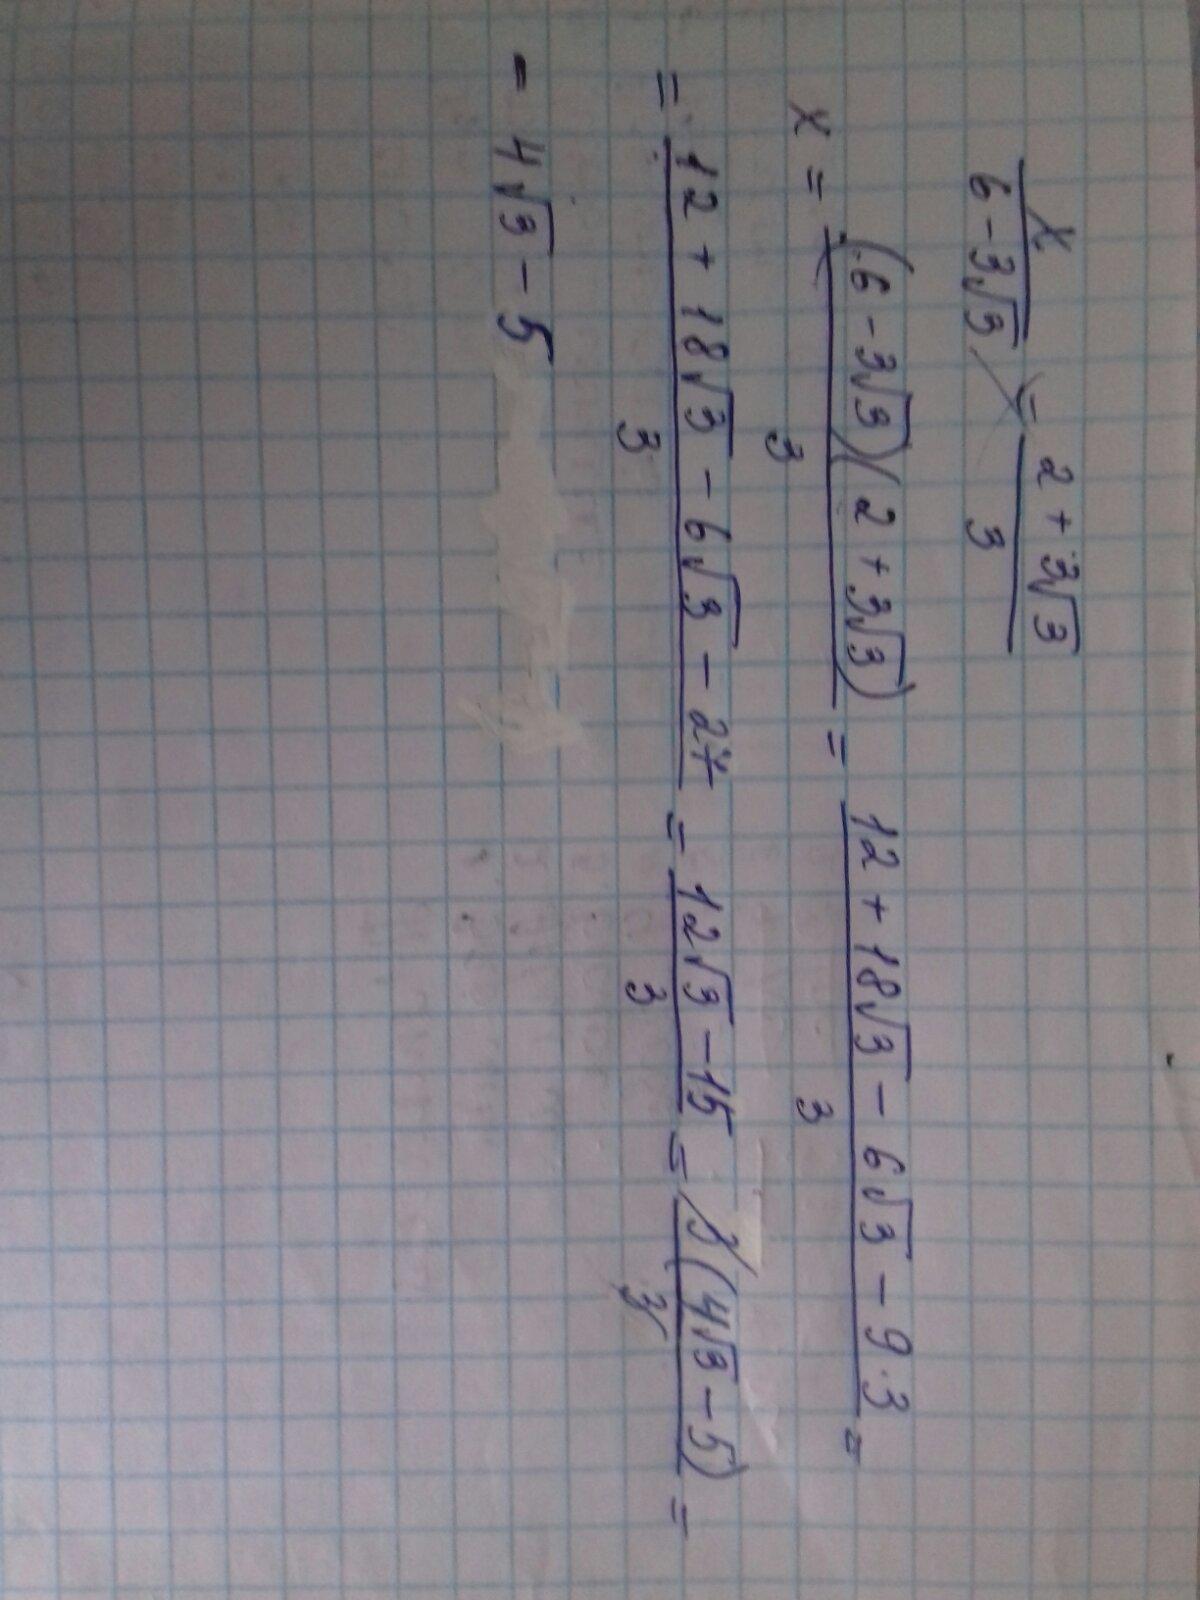 x/(6-3√3) = (2+3√3)/3
x = (6-3√3)(2+3√3)/3 = (12+18√3-6√3-9·3)/3 =
= (12+18√3-6√3-27)/3 = (12√3-15)/3 = 3(4√3-5)/3 =
= 4√3-5